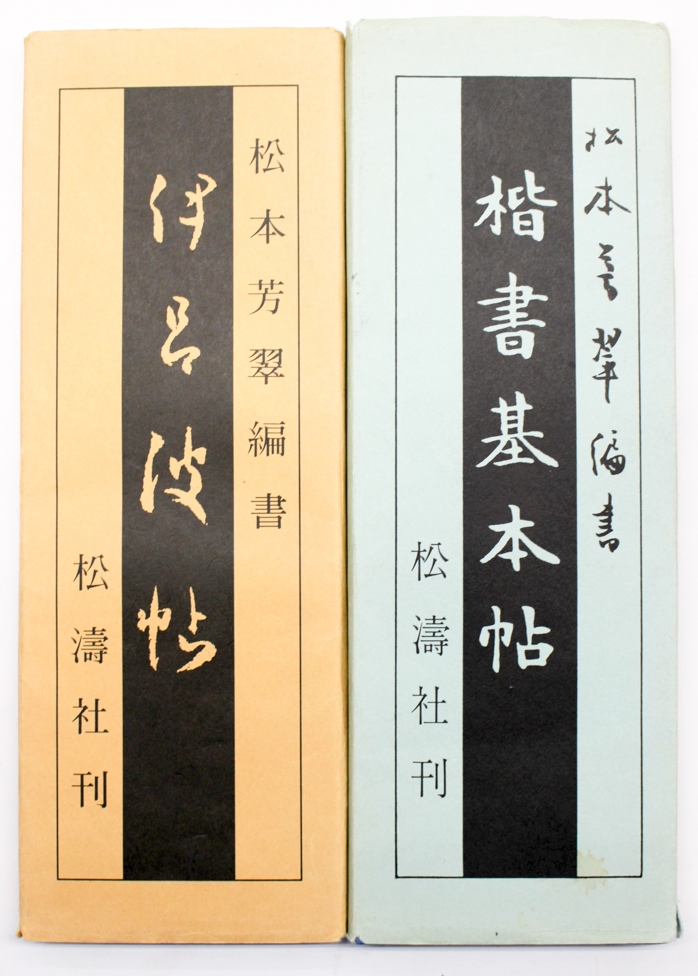 松本芳翠編書
伊呂波帖
松濤社刊
松本芳翠編書
楷書基本帖
松濤社刊